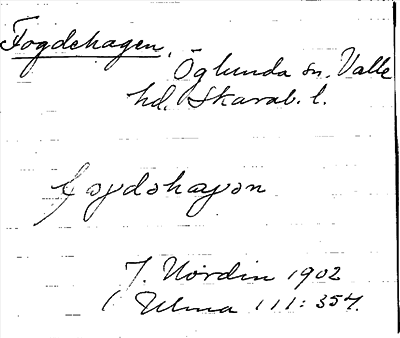 Fogdehagen.
Öglunda sn. Valle
hd. Skarab. l.
J. Nordin 1902
Ulma 111: 354.